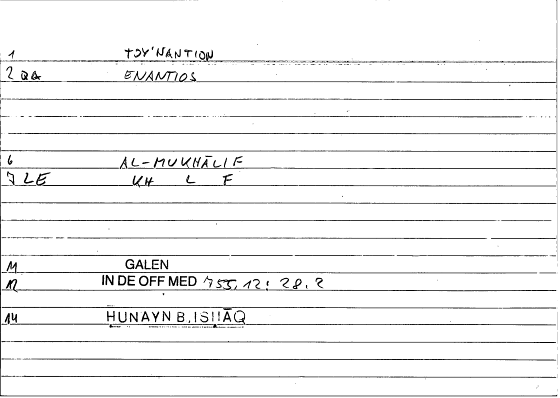 1 TOY'NANTION
2 QA ENANTIOS
6 AL-MUKHĀLIF
7 LE KH L F
11 GALEN
12 IN DE OFF MED 755,12: 28.2
14 HUNAYN B. ISḤĀQ